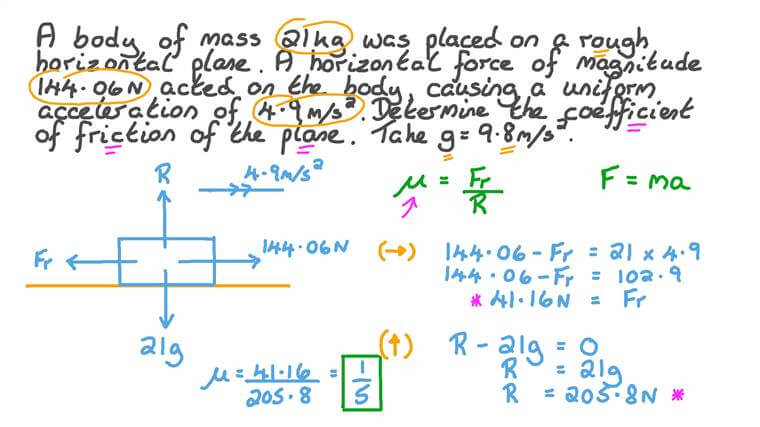 A body of mass 21kg was placed on a rough
horizontal plane. A horizontal force of magnitude
144.06N acted on the body, causing a uniform
acceleration of 4.9m/s². Determine the coefficient
of friction of the plane. Take g = 9.8m/s².
R
4.9m/s²
Fr
144.06N
21g
μ = Fr/R
F = ma
(→) 144.06 - Fr = 21 × 4.9
144.06 - Fr = 102.9
* 41.16N = Fr
(↑) R - 21g = 0
R = 21g
R = 205.8N *
μ = 41.16/205.8 = 1/5